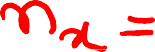 n_x =